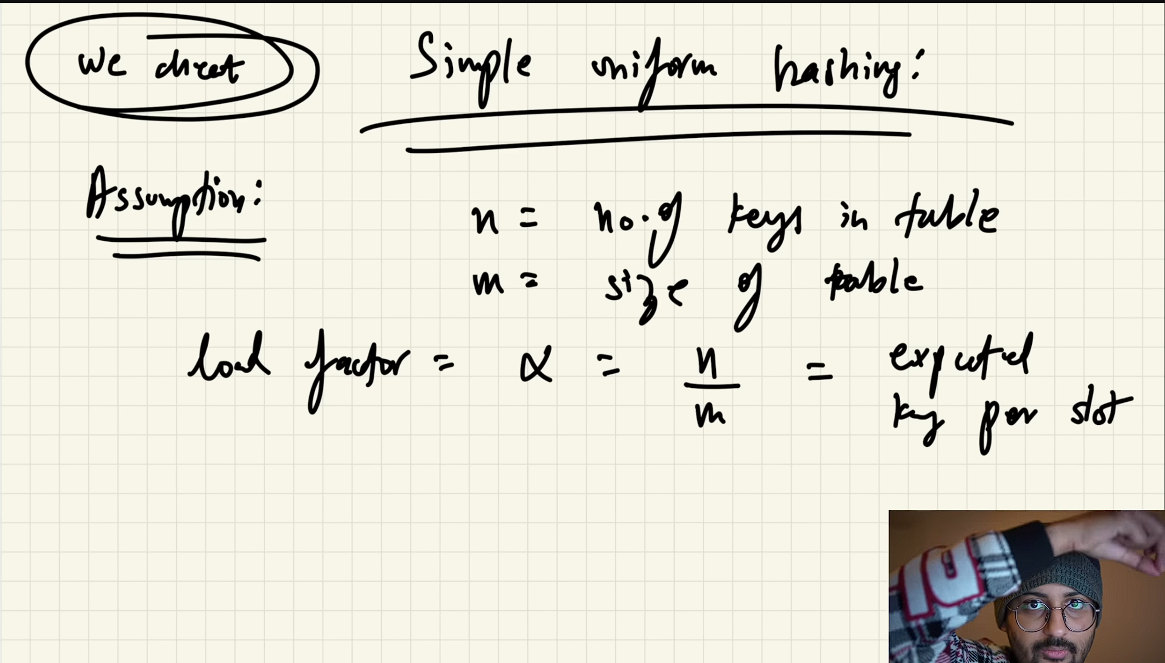 We cheat
Simple uniform hashing:
Assumption:
n = no. of keys in table
m = size of table
load factor = α = n/m = expected
key per slot